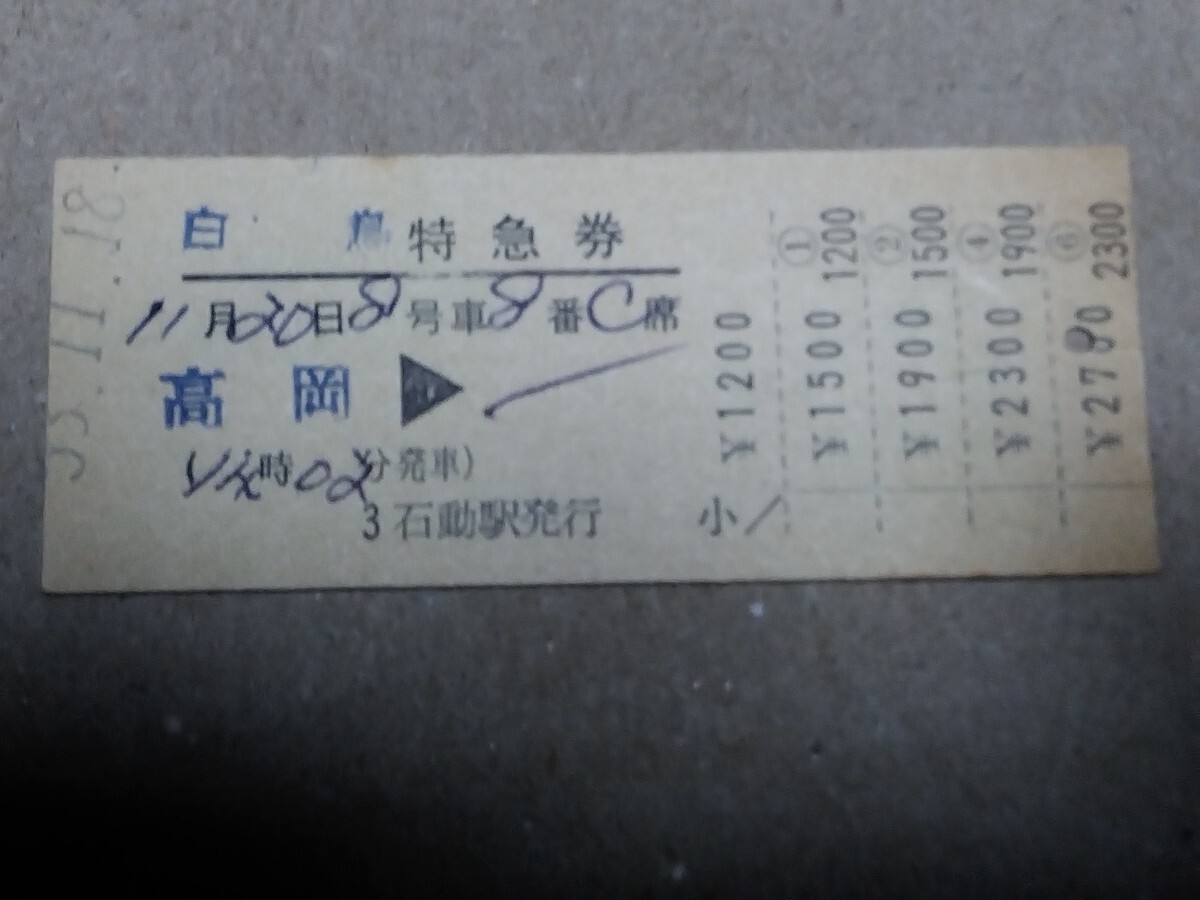 白鳥特急券
11月20日8号車8番C席
高岡▶
時02分発車)
3石動駅発行
小
¥1200
① 1200
¥1500
② 1500
¥1900
④ 1900
¥2300
⑥ 2300
.11.18.